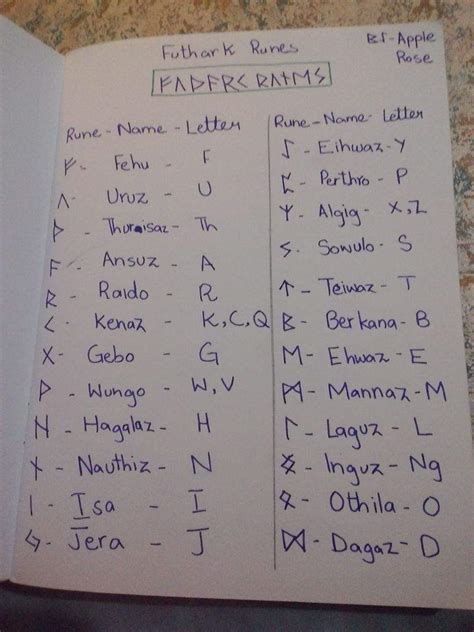 Futhark Runes
By-Apple
Rose
ᚠᚢᚦᚨᚱᚲ ᚱᚢᚾᛖᛊ
Rune - Name - Letter
ᚠ - Fehu - F
ᚢ - Uruz - U
ᚦ - Thuraisaz - Th
ᚨ - Ansuz - A
ᚱ - Raido - R
ᚲ - Kenaz - K, C, Q
ᚷ - Gebo - G
ᚹ - Wungo - W, V
ᚺ - Hagalaz - H
ᚾ - Nauthiz - N
ᛁ - Isa - I
ᛃ - Jera - J
Rune - Name - Letter
ᛇ - Eihwaz - Y
ᛈ - Perthro - P
ᛉ - Algig - X, Z
ᛊ - Sowulo - S
ᛏ - Teiwaz - T
ᛒ - Berkana - B
ᛖ - Ehwaz - E
ᛗ - Mannaz - M
ᛚ - Laguz - L
ᛝ - Inguz - Ng
ᛟ - Othila - O
ᛞ - Dagaz - D